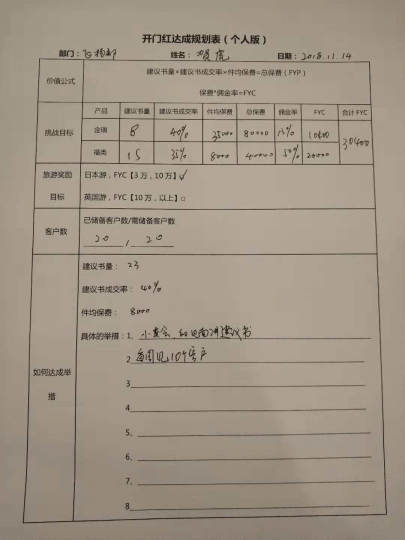 开门红达成规划表（个人版）
部门： 飞扬部 姓名： 贺虎 日期：2018.11.14
价值公式
建议书量×建议书成交率×件均保费=总保费（FYP）
保费*佣金率=FYC
挑战目标
产品 建议书量 建议书成交率 件均保费 总保费 佣金率 FYC 合计 FYC
金瑞 8 40% 35000 80000 13% 10400 30400
福类 15 35% 8000 40000 50% 20000
旅游奖励目标
日本游，FYC【3 万，10 万】√
英国游，FYC【10 万，以上】□
客户数
已储备客户数/需储备客户数
20 / 20
如何达成举措
建议书量： 23
建议书成交率： 40%
件均保费： 8000
具体的举措：1、 建议书
2 每周见10个客户
3
4
5、
6、
7、
8